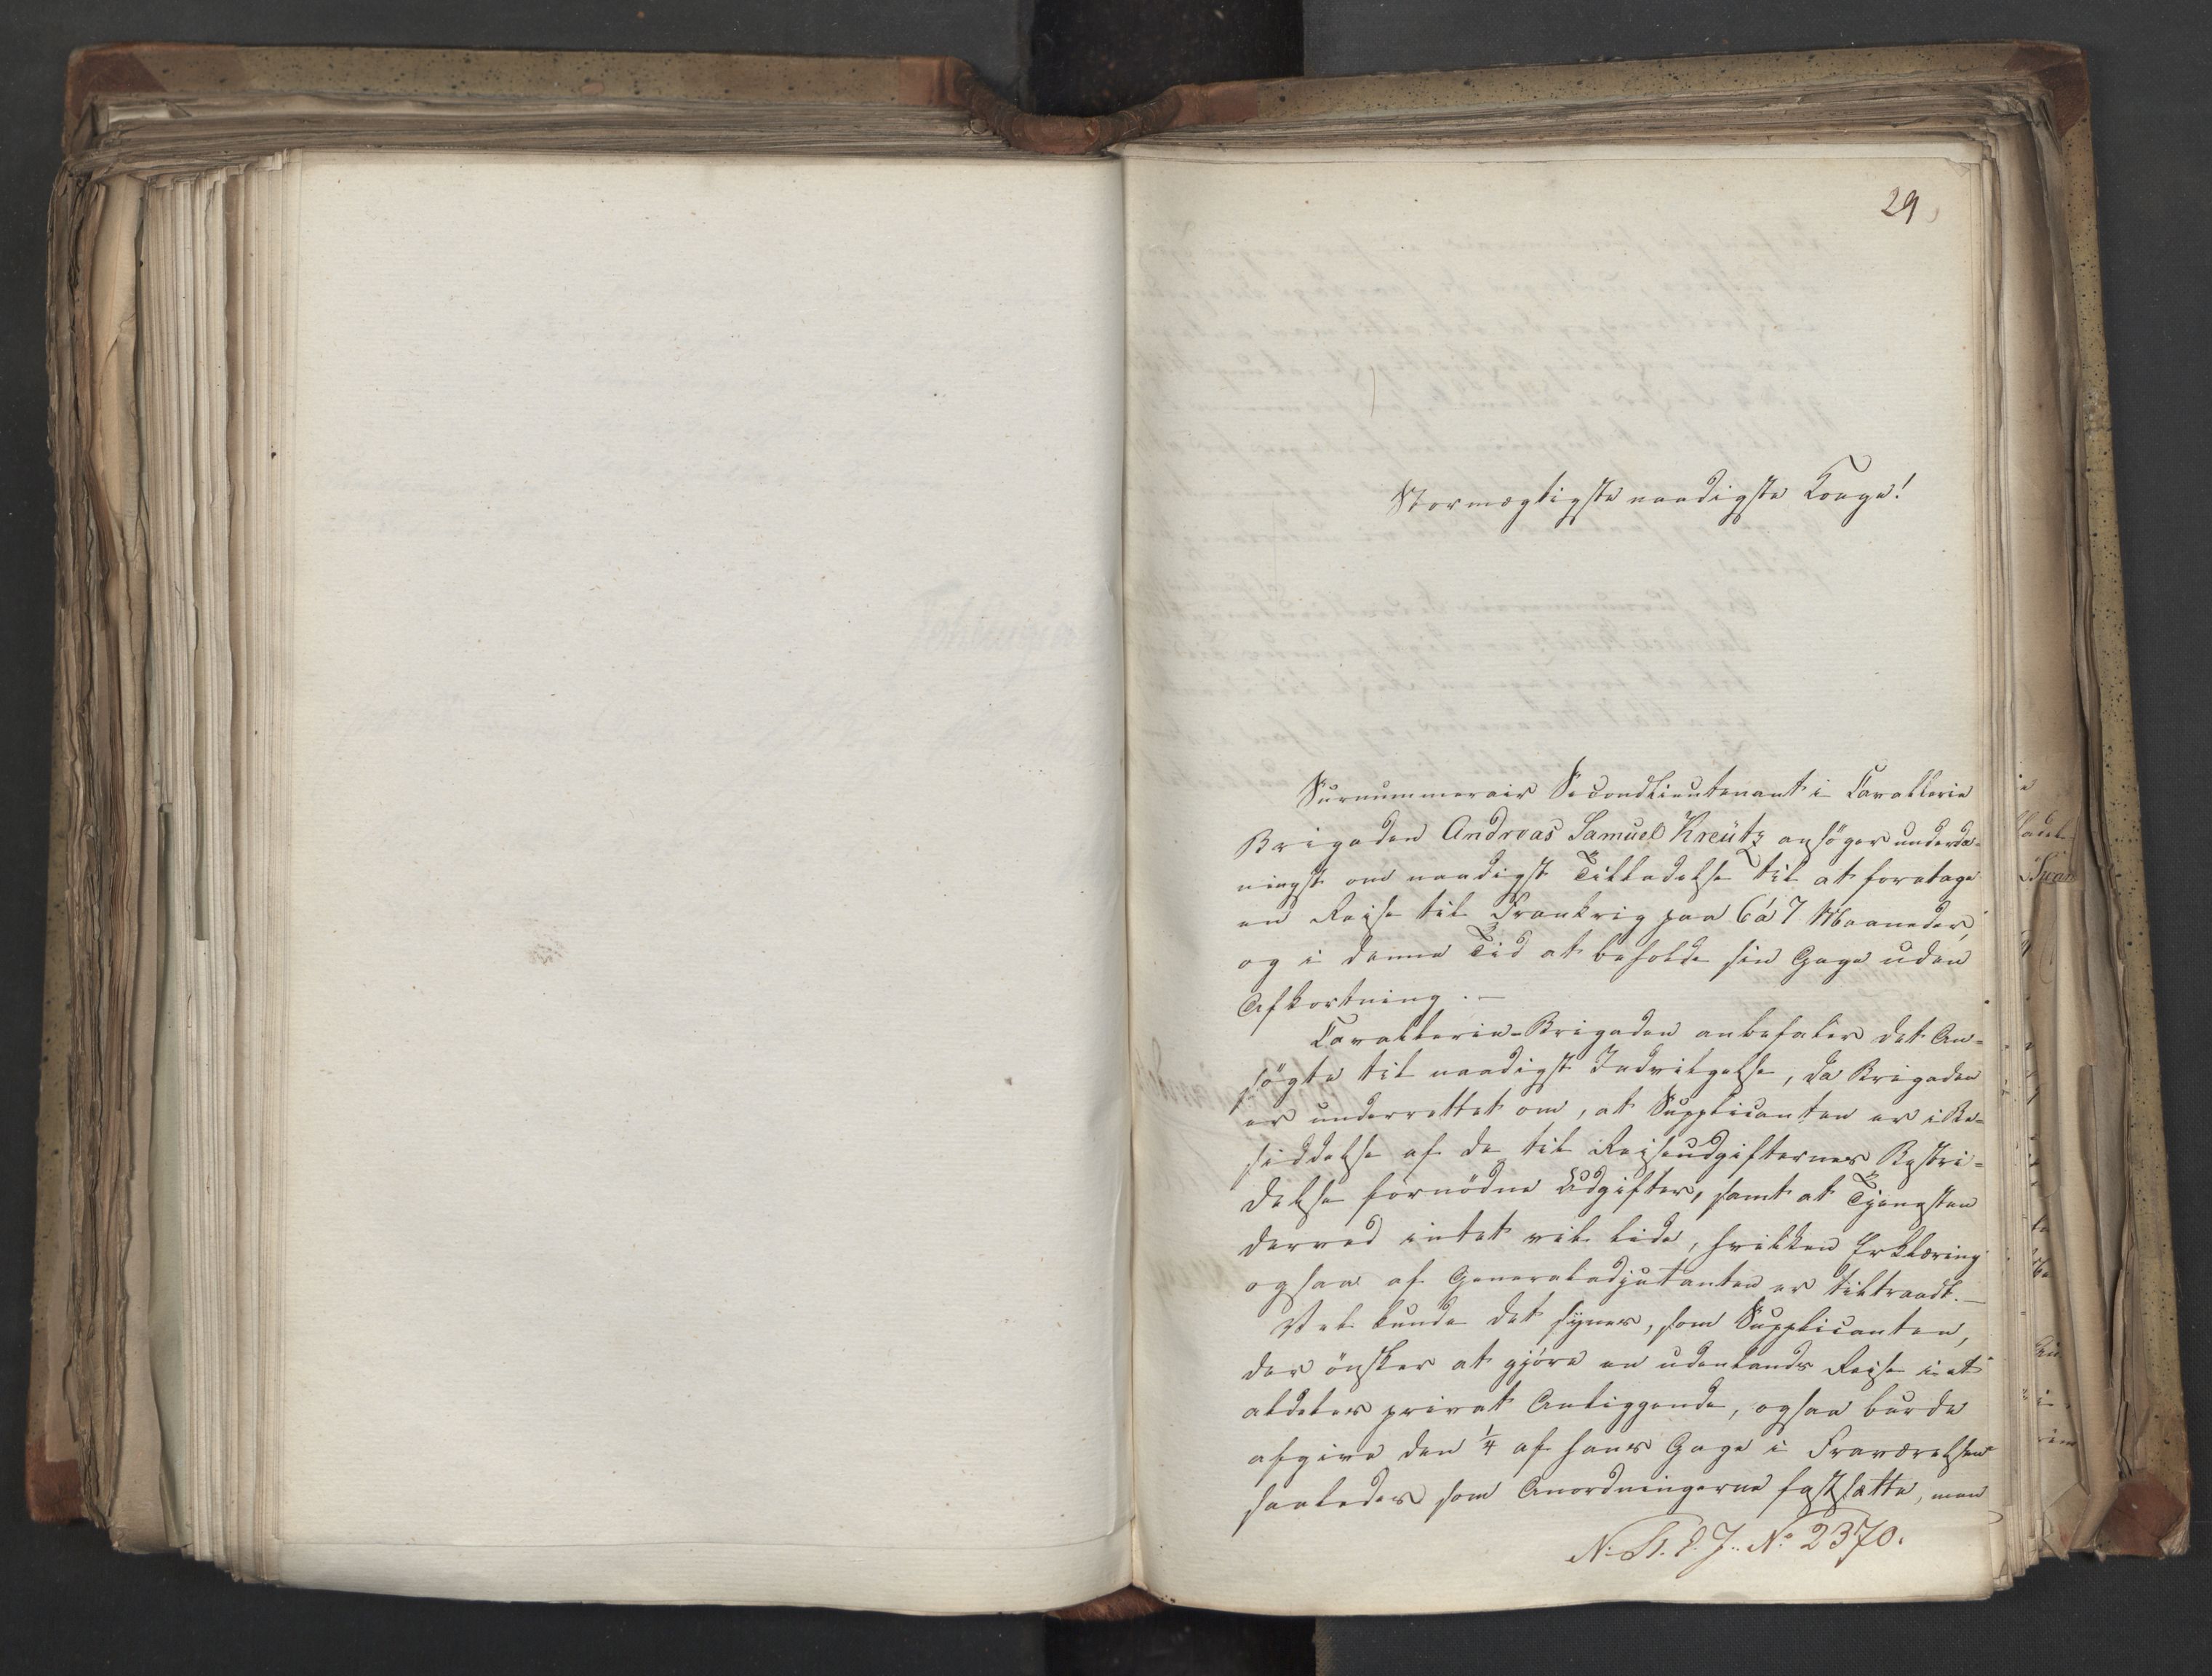 29
Stormægtigste naadigste Konge!
Surnummerair Secondlieutenant i Cavallerie
Brigaden Andreas Samuel Kreütz ansöger underda-
nigst om naadigst Tilladelse til at foretage
en Reise til Frankrig paa 6 á 7 Maaneder,
og i denne Tid at beholde sin Gage uden
Afkortning. —
Cavallerie-Brigaden anbefaler det An-
søgte til naadigst Indvilgelse, da Brigaden
er underrettet om, at Supplicanten er i Be-
siddelse af de til Reiseudgifternes Bestri-
delse fornödne Udgifter, samt at Tjenesten
derved intet vil lide, hvilken Erklæring
ogsaa af Generaladjutanten er tiltraadt. —
Vel kunde det synes, som Supplicanten,
der önsker at gjöre en udenlands Reise i et
aldeles privat Anliggende, ogsaa burde
afgive den ¼ af hans Gage i Fraværelsen
saaledes som Anordningerne fastsætte, men
N. St. C. J. No 2370.